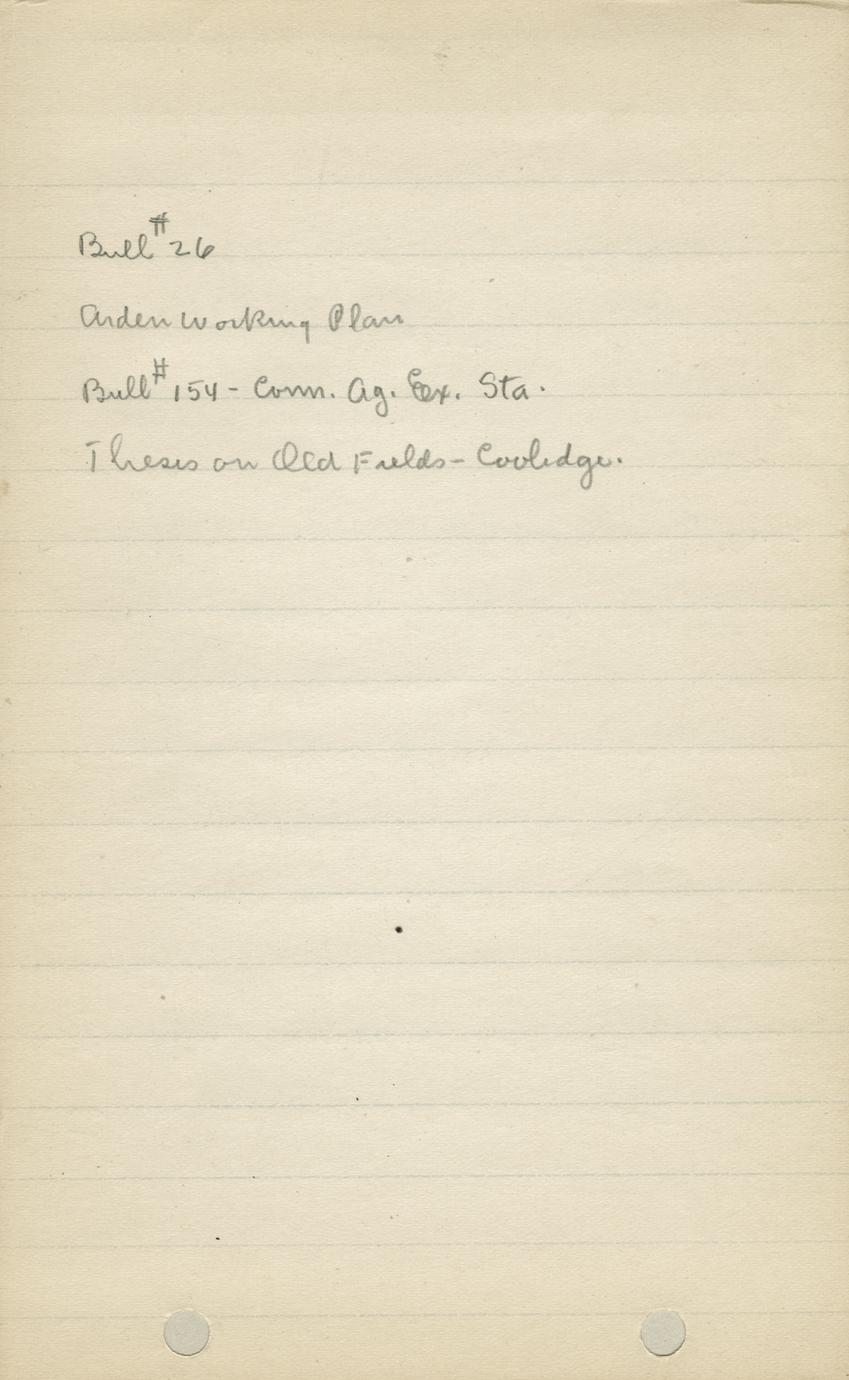 Bull # 26
Arden Working Plan
Bull # 154 - Conn. Ag. Ex. Sta.
Thesis on Old Fields - Coolidge.